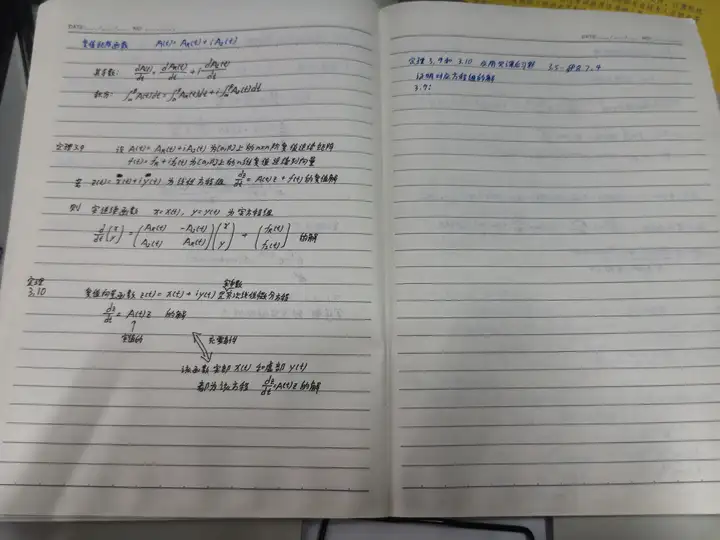 DATE NO
复值矩阵函数 A(t)= A_R(t)+ i A_I(t)
其导数: dA(t)/dt = dA_R(t)/dt + i dA_I(t)/dt
积分: ∫A(t)dt = ∫A_R(t)dt + i∫A_I(t)dt
定理3.9 设 A(t)= A_R(t)+ i A_I(t) 为[α,β]上的n×n阶复值连续矩阵
f(t)= f_R + i f_I(t) 为[α,β]上的n维复值连续列向量
若 z(t)= x(t)+ i y(t) 为线性方程组 dz/dt = A(t)z + f(t) 的复值解
则 实值函数 x=x(t), y=y(t) 为实方程组
d/dt (x y) = (A_R(t) -A_I(t) A_I(t) A_R(t)) (x y) + (f_R(t) f_I(t)) 的解
定理
3.10 复值向量函数 z(t)= x(t)+ i y(t) 是齐次线性微分方程
实系数
dz/dt = A(t)z 的解
↑
实值的 充要条件
该函数实部 x(t) 和虚部 y(t)
都为该方程 dz/dt = A(t)z 的解
DATE NO
定理 3.9 和 3.10
证明对应方程组的解
3.9: